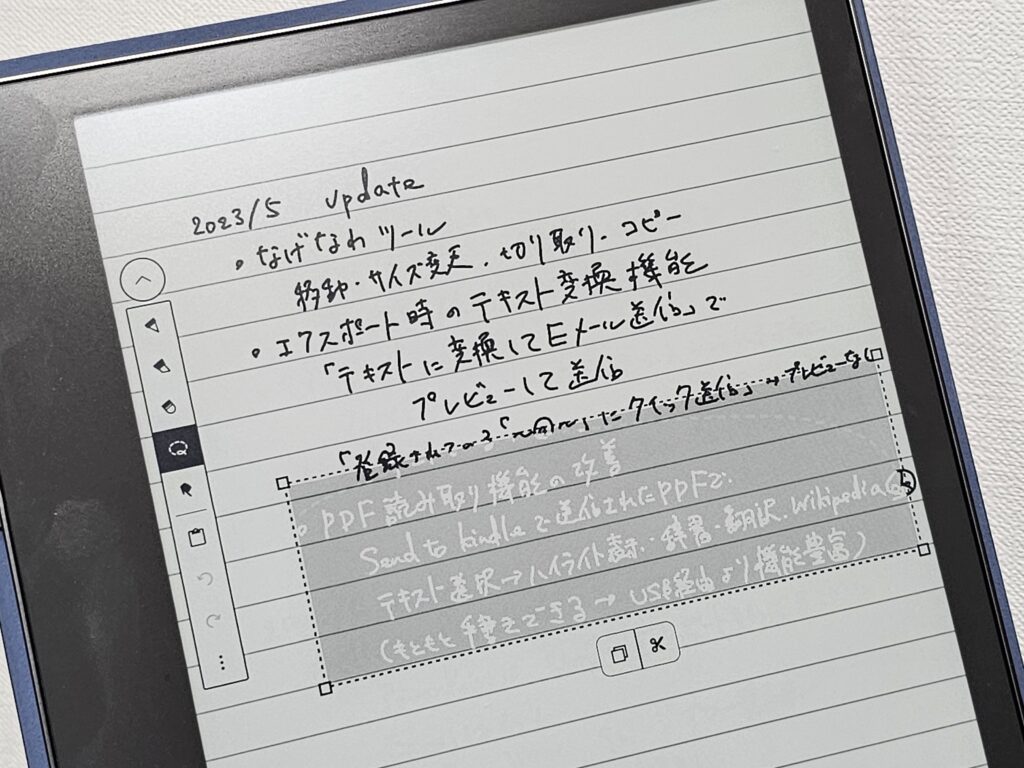 2023/5 update
・なげなわツール
移動・サイズ変更・切り取り・コピー
・エクスポート時のテキスト変換機能
「テキストに変換してEメール送信」で
プレビューして送信
「登録されている「 にクイック送信」→プレビューなし
・PDF読み取り機能の改善
Send to kindleで送信されたPDFで
テキスト選択→ハイライト表示・辞書・翻訳・Wikipedia
(もともと手書きできる→USB経由より機能豊富)